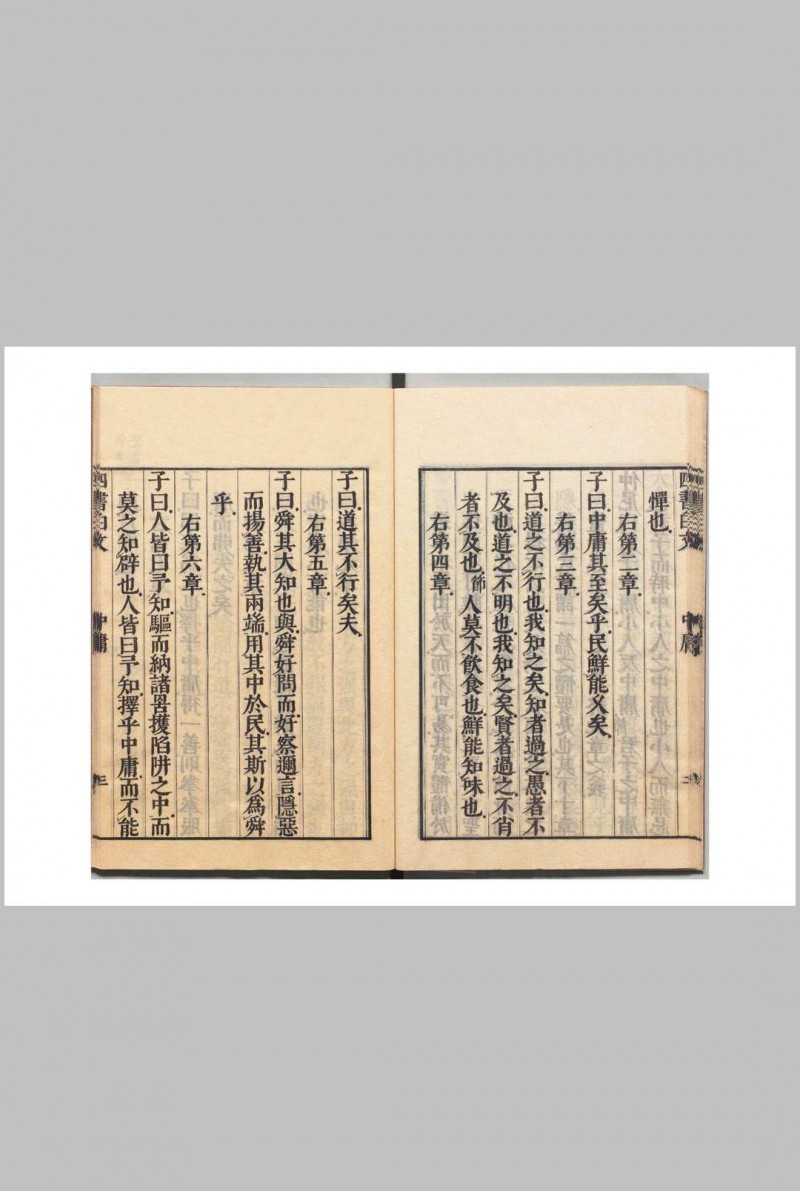 四書白文 中庸 二
憚也
右第二章
子曰中庸其至矣乎民鮮能久矣
右第三章
子曰道之不行也我知之矣知者過之愚者不
及也道之不明也我知之矣賢者過之不肖
者不及也節人莫不飲食也鮮能知味也
右第四章
子曰道其不行矣夫
右第五章
子曰舜其大知也與舜好問而好察邇言隱惡
而揚善執其兩端用其中於民其斯以為舜
乎
右第六章
子曰人皆曰予知驅而納諸罟擭陷阱之中而
莫之知辟也人皆曰予知擇乎中庸而不能
四書白文 中庸 三